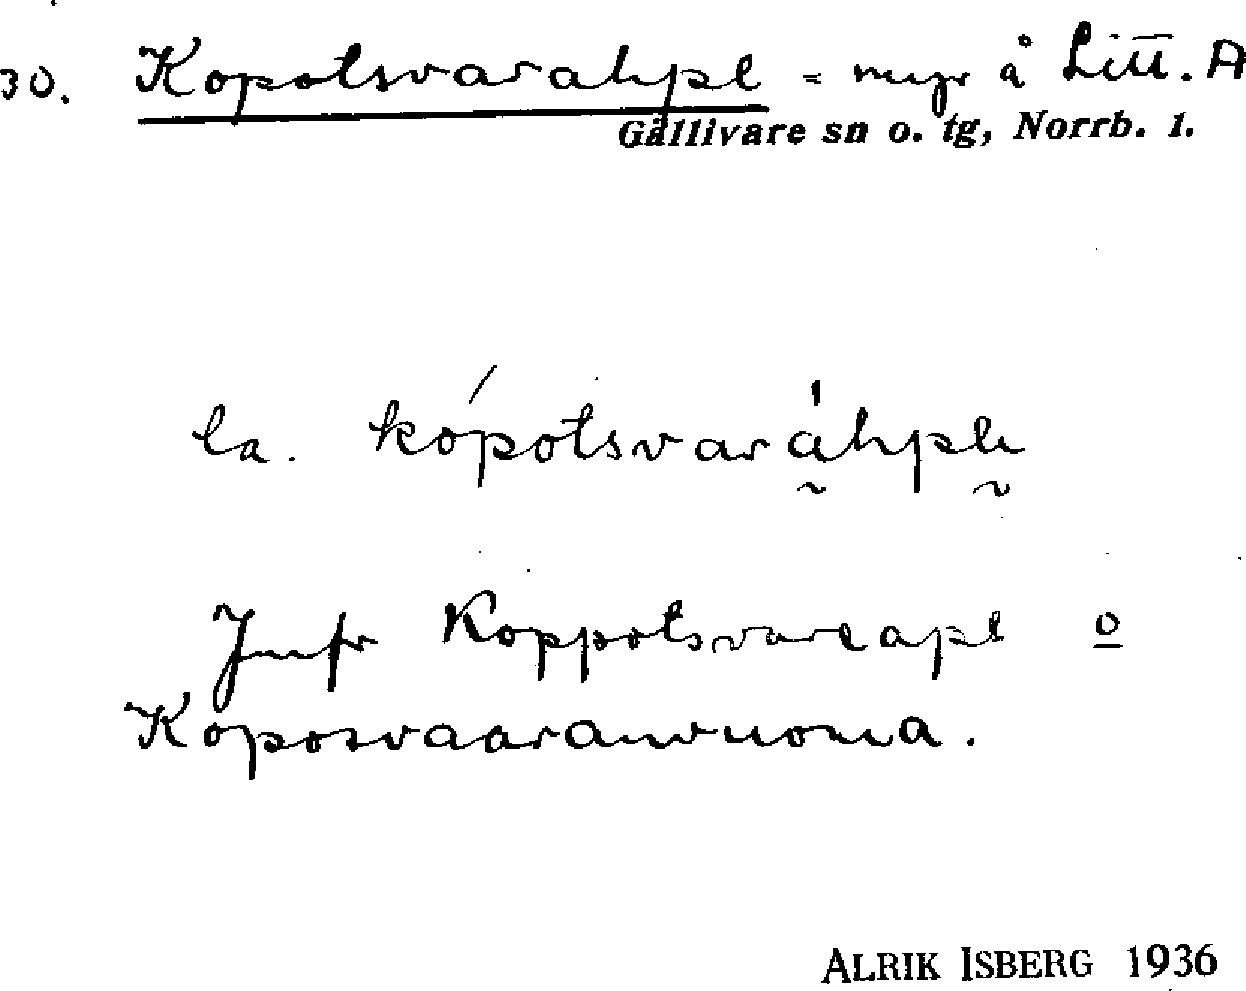 30. Kopotsvarahpe = myr å Litt. A
Gällivare sn o. tg, Norrb. l.
la. kópotsvaráhpe
Jmfr Koppotsvareape o
Koposvaaranvuoma.
ALRIK ISBERG 1936